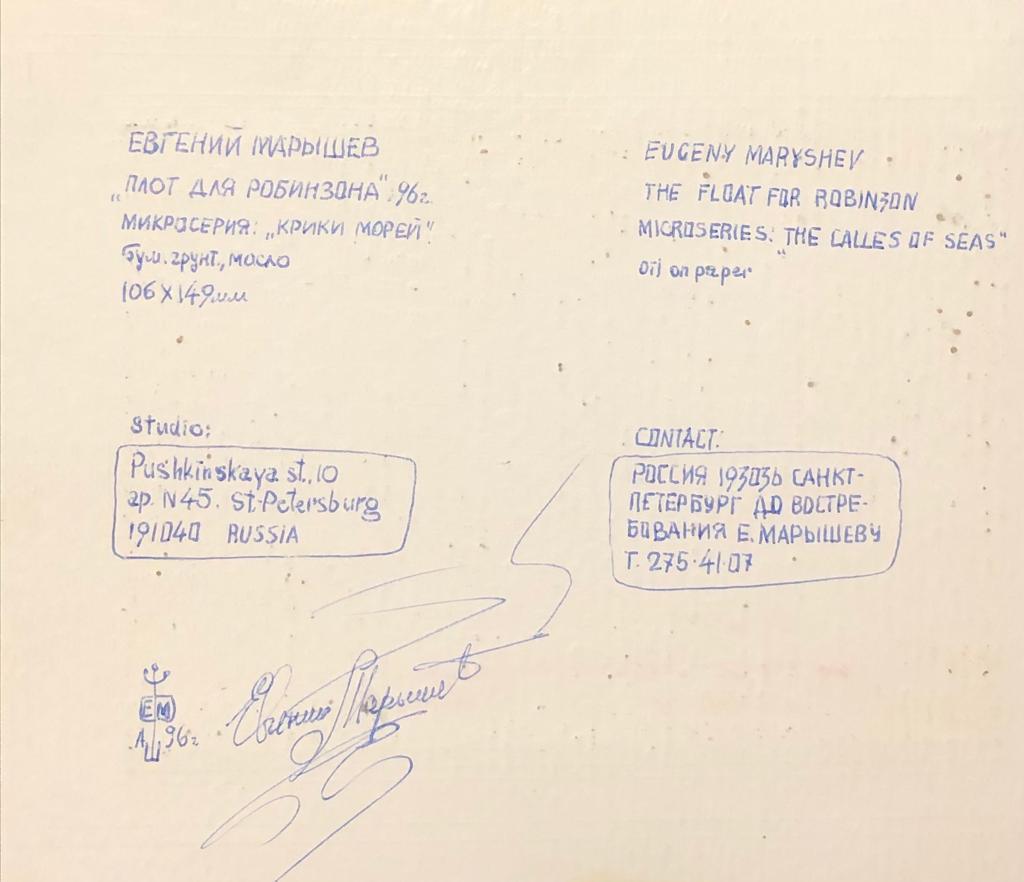 ЕВГЕНИЙ МАРЫШЕВ
„ПЛОТ ДЛЯ РОБИНЗОНА" 96г.
МИКРОСЕРИЯ: „КРИКИ МОРЕЙ"
бум. грунт., масло
106 X 149мм
EUGENY MARYSHEV
THE FLOAT FOR ROBINZON
MICROSERIES: „THE CALLES OF SEAS"
oil on paper
Studio:
Pushkinskaya st., 10
ap. N45. St-Petersburg
191040 RUSSIA
CONTACT:
РОССИЯ 193036 САНКТ-
ПЕТЕРБУРГ ДО ВОСТРЕ-
БОВАНИЯ Е. МАРЫШЕВУ
Т. 275-41-07
ЕМ
96г
Евгений Марышев